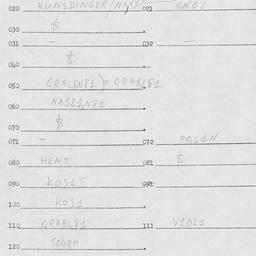 020 KUNSDINGER/NAN 021 GNO1
030 $
031 — 032 —
040 $
050 GRALSN81) = GRABL81
060 NAS81N81
070 $
071 — 072 POL1N
080 HENT 081 $
090 KOS1T 091
100 KOS1
110 GRABL81 111 V1DL1
120